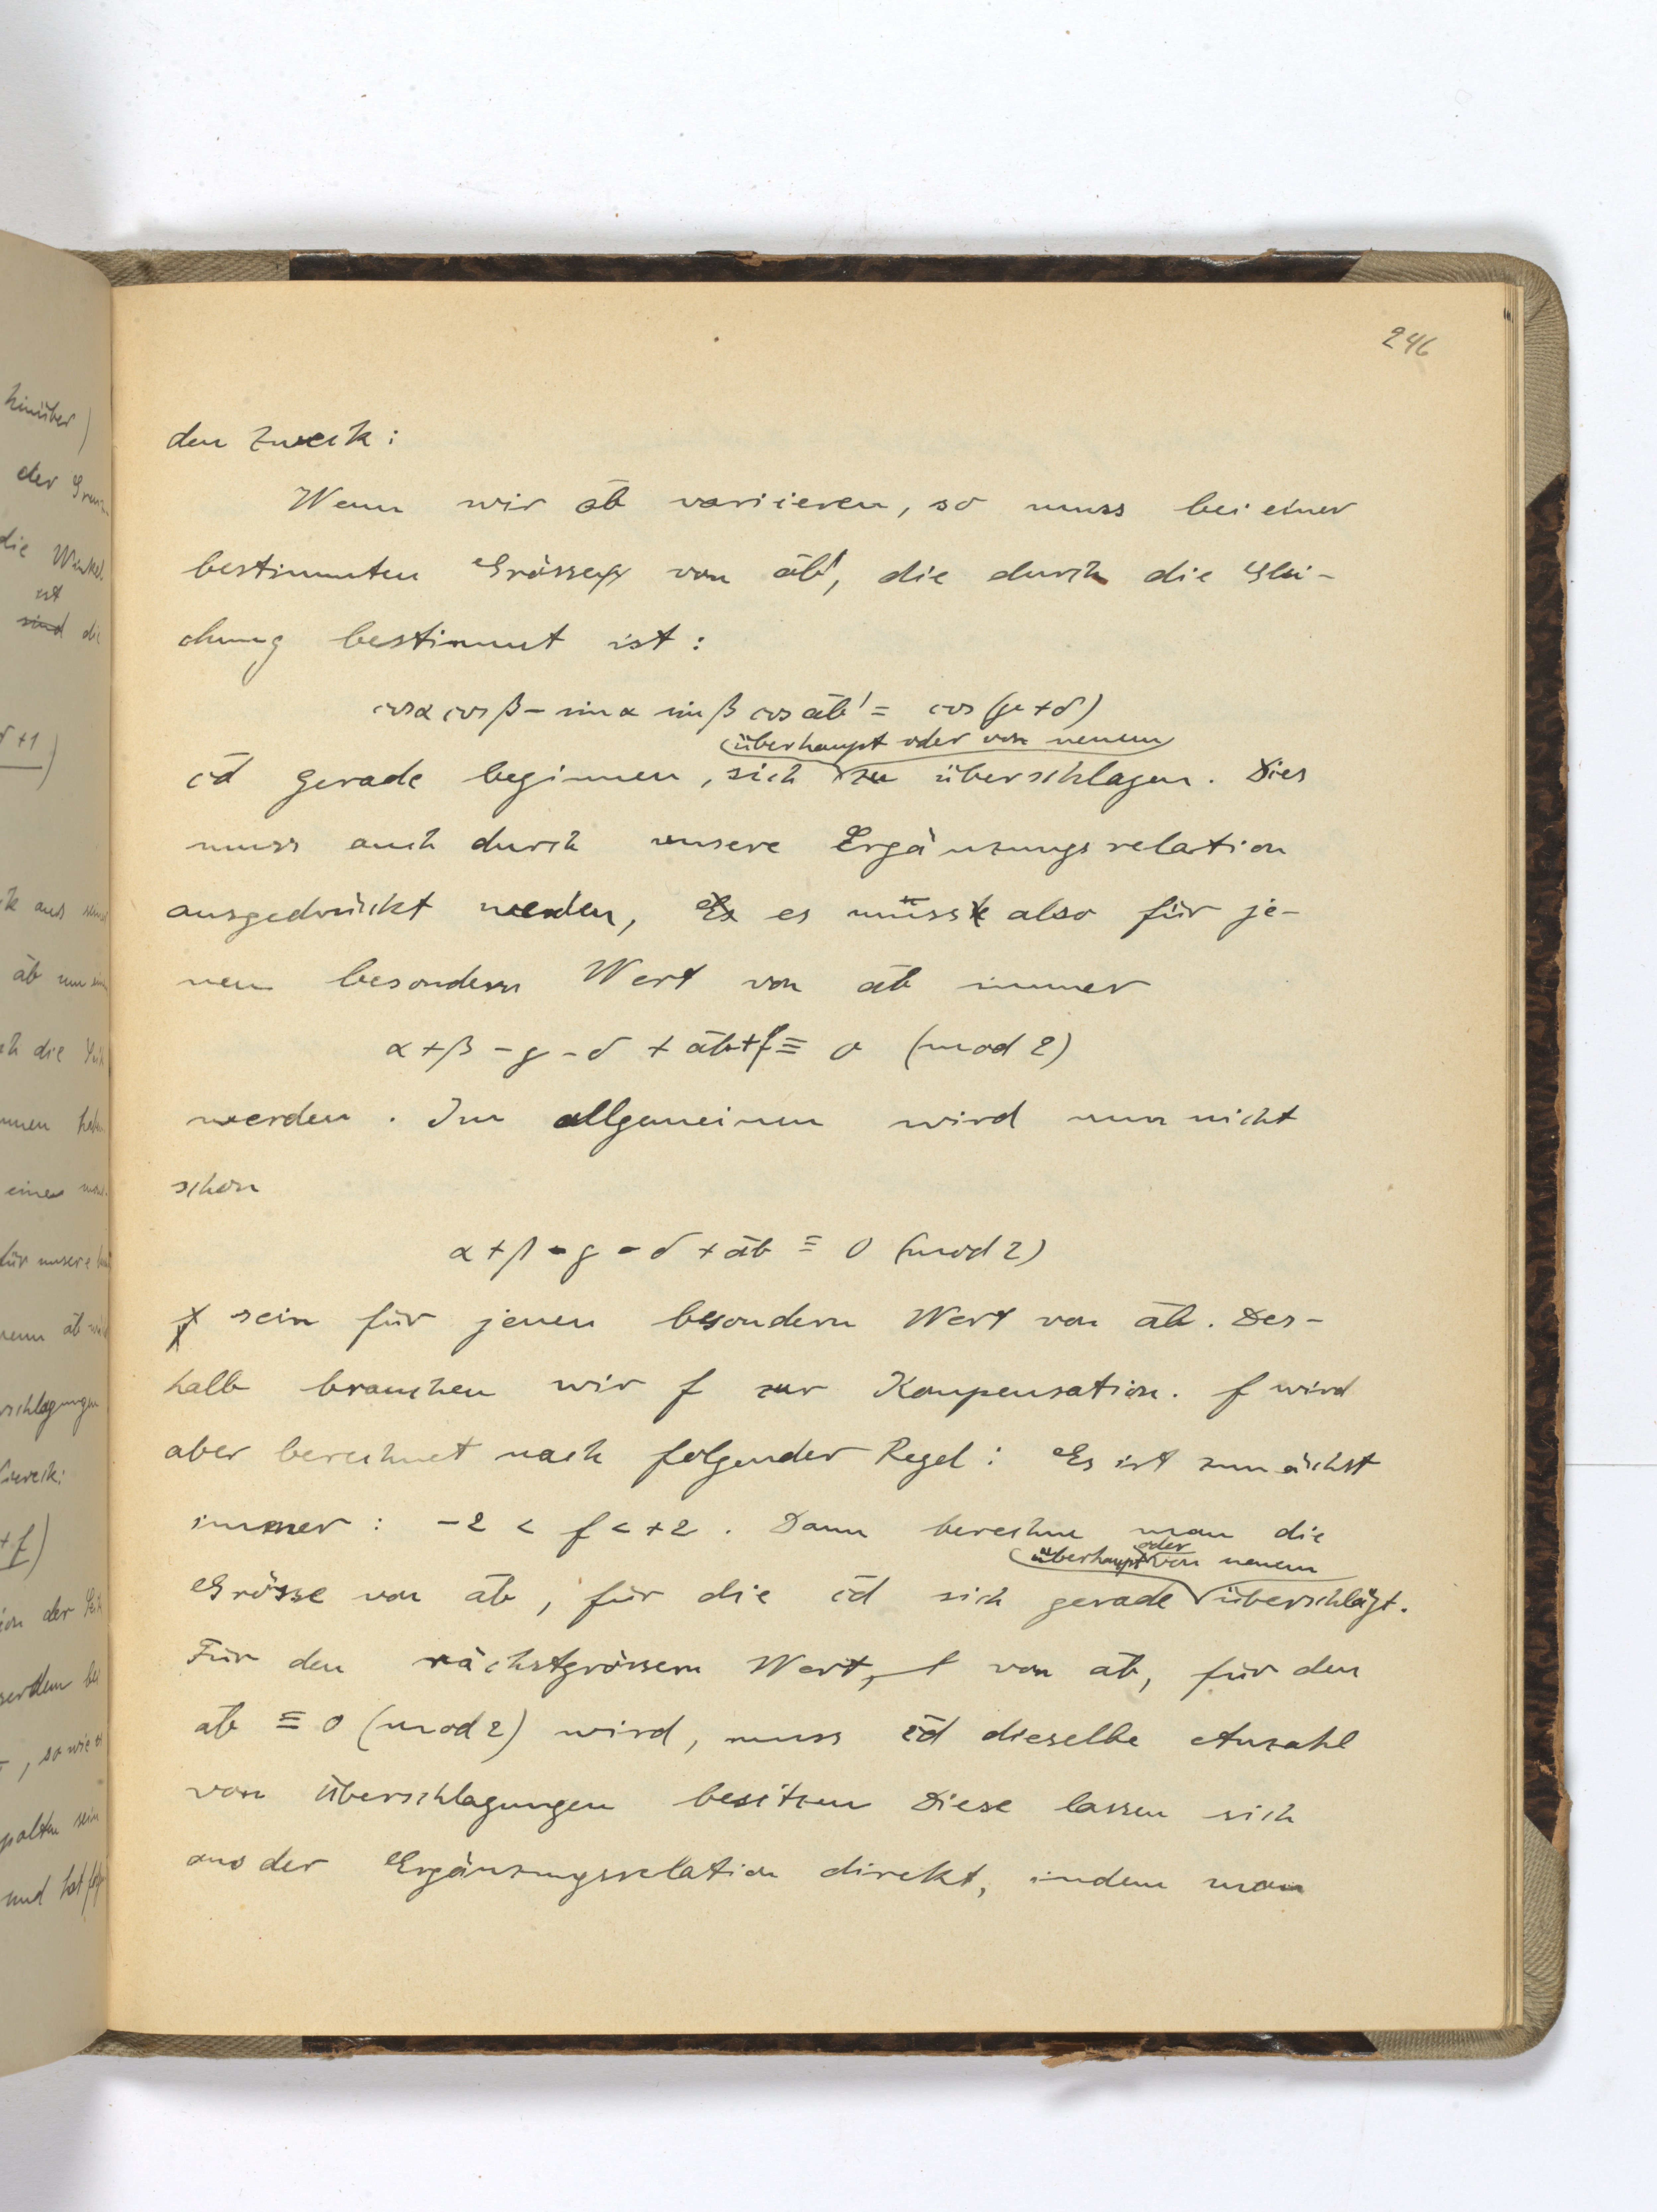 246
den Zweck:
Wenn wir āb variieren, so muss bei einer
bestimmten Grösse von āb', die durch die Glei-
chung bestimmt ist:
cos α cos β – sin α sin β cos āb' = cos (γ + δ)
(überhaupt oder von neuem)
c̄d gerade beginnen, sich zu überschlagen. Dies
muss auch durch unsere Ergänzungsrelation
ausgedrückt werden, es muss also für je-
nen besondern Wert von āb immer
α + β – γ – δ + āb + f ≡ 0 (mod 2)
werden. Im allgemeinen wird nun nicht
schon
α + β - γ - δ + āb ≡ 0 (mod 2)
sein für jenen besondern Wert von āb. Des-
halb brauchen wir f zur Kompensation. f wird
aber berechnet nach folgender Regel: Es ist zunächst
immer: –2 < f < +2. Dann berechne man die
(überhaupt oder von neuem
Grösse von āb, für die c̄d sich gerade überschlägt.
Für den nächstgrössern Wert, von āb, für den
āb ≡ 0 (mod 2) wird, muss c̄d dieselbe Anzahl
von Überschlagungen besitzen Diese lassen sich
aus der Ergänzungsrelation direkt, indem man
hinüber)
der
die
ist
sind die
āb
ch die
einen
für unsere
wenn āb
Zweck:
+ f)
ion der
, so wie
und hat